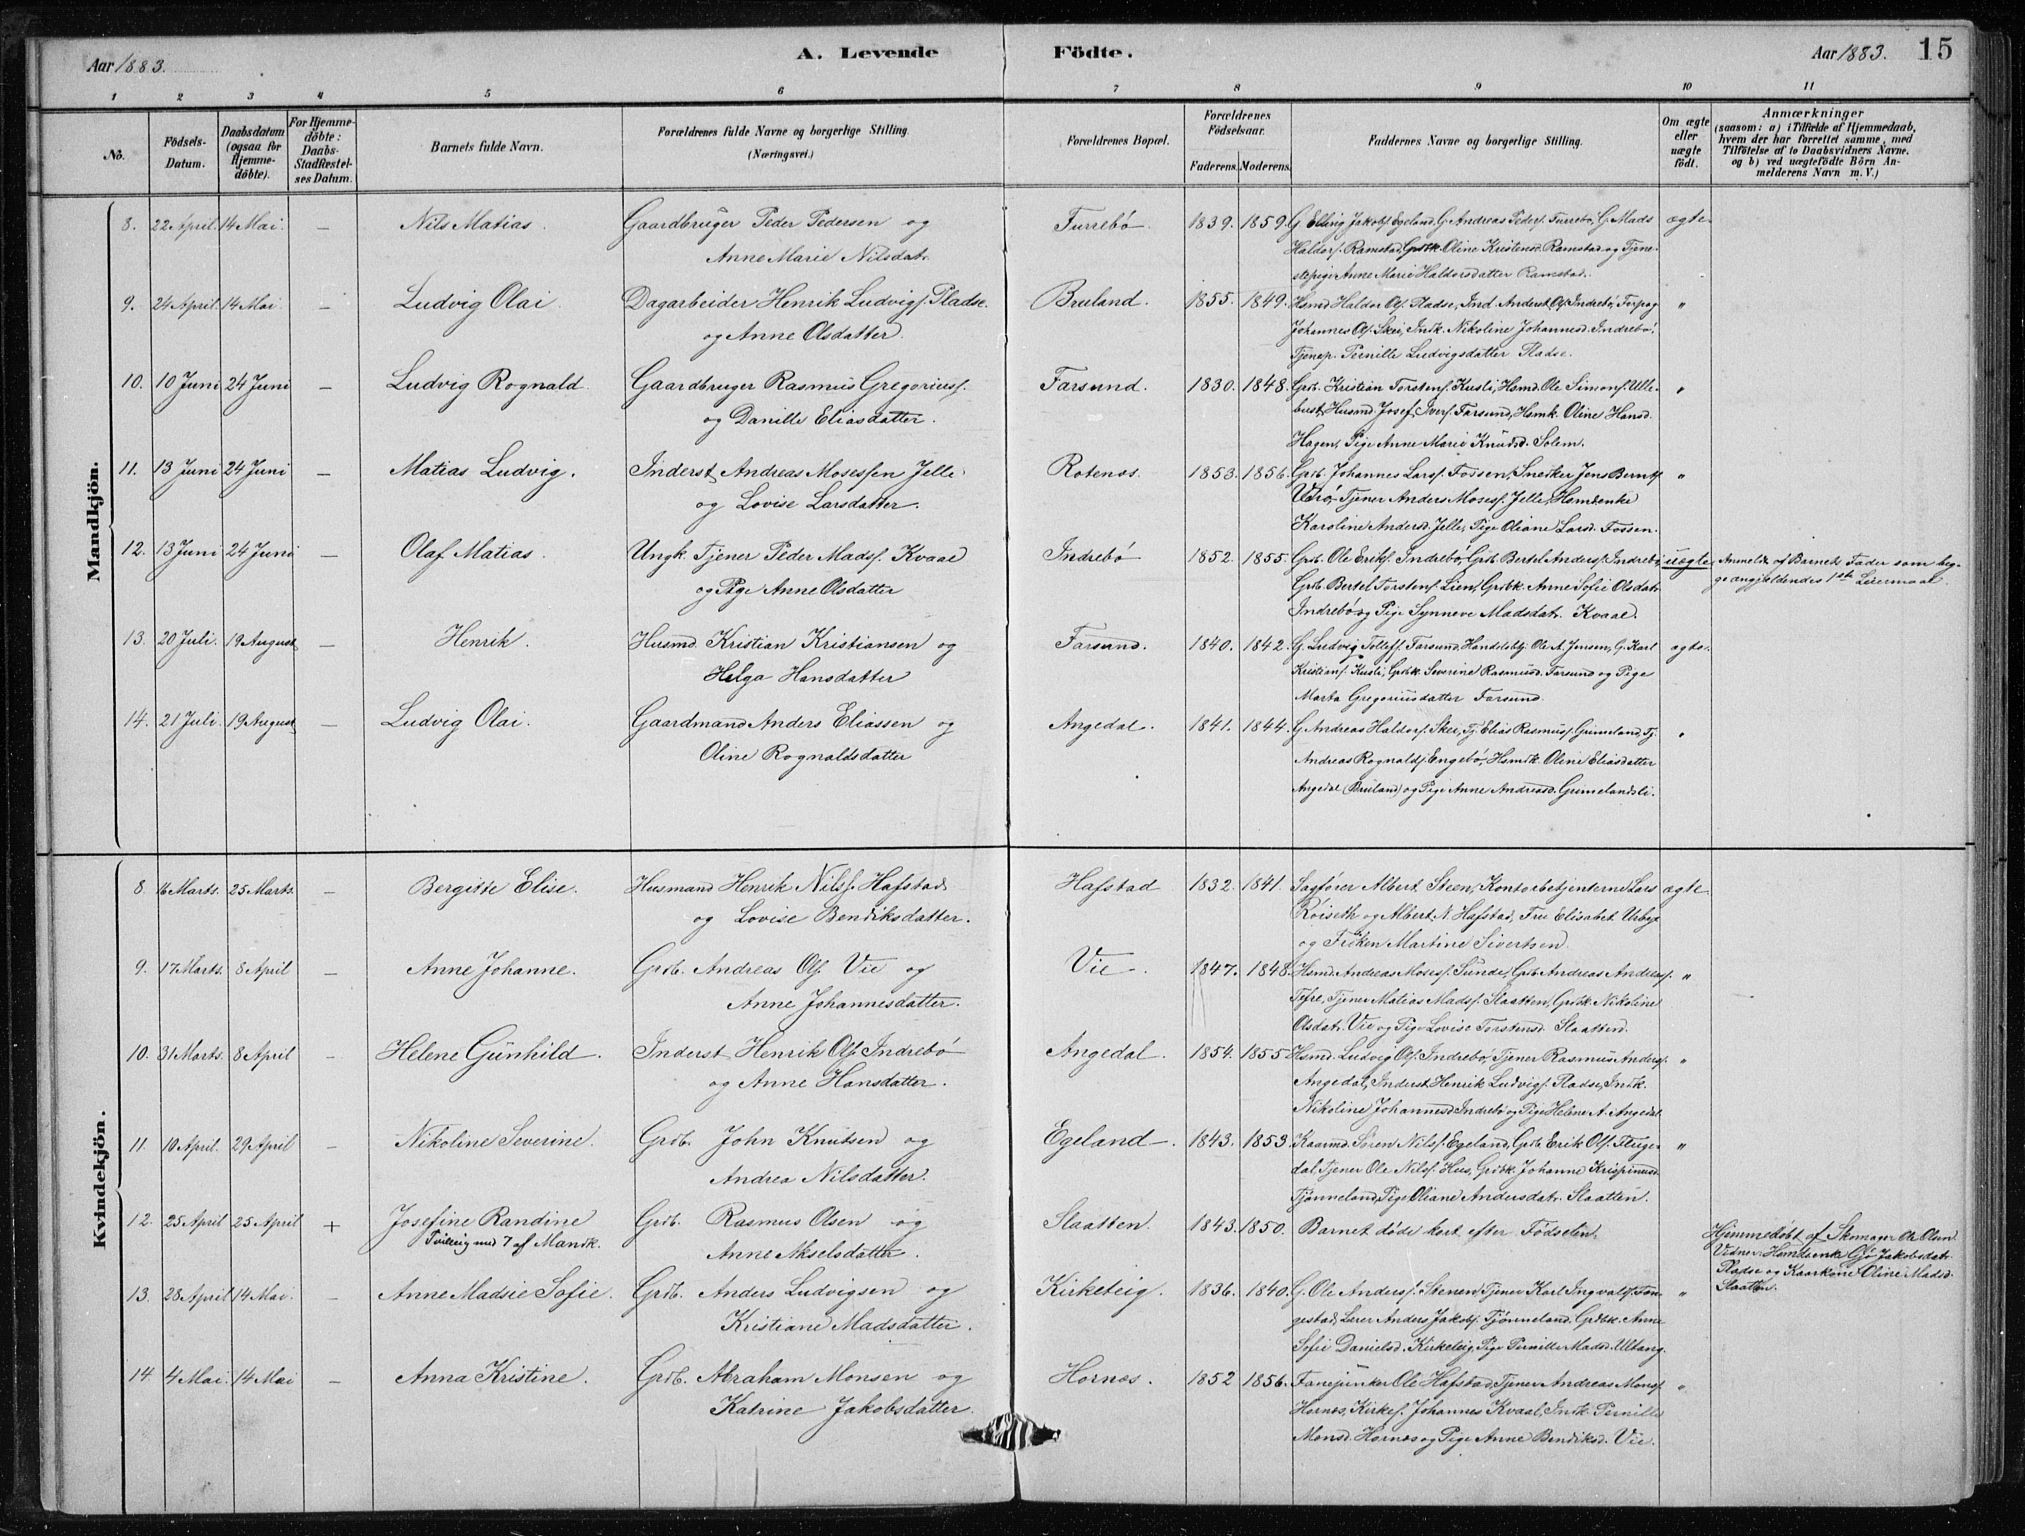 Aar 1883.
A. Levende Födte.
Aar 1883. 15
1 2 3 4 5 6 7 8 9 10 11
No.
Födsels-Datum.
Daabsdatum (ogsaa for Hjemme-döbte).
For Hjemme-döbte: Daabs-Stadfæstel-ses Datum.
Barnets fulde Navn.
Forældrenes fulde Navne og borgerlige Stilling. (Næringsvei.)
Forældrenes Bopæl.
Forældrenes Födselsaar.
Faderens. Moderens.
Faddernes Navne og borgerlige Stilling.
Om ægte eller uægte födt.
Anmærkninger
(saasom: a) i Tilfælde af Hjemmedaab,
hvem der har forrettet samme, med
Tilföielse af to Daabsvidners Navne.
og b) ved uægtefödte Börn An-
melderens Navn m. V.)
Mandkjön.
8. 22 April. 14 Mai. — Nils Matias. Gaardbruger Peder Pedersen og Furrebø. 1839. 1859. G. Elling Jakobs. Egeland, G. Andreas Peders. Furrebø, G. Mads ægte.
Anne Marie Nilsdatr. Haldors. Ramstad, Grdbk. Oline Kristensd. Ramstad og Tjene-
stepige Anne Marie Haldorsdatter Ramstad.
9. 24 April 14 Mai. — Ludvig Olai. Dagarbeider Henrik Ludvigs. Pladse. Bruland. 1855. 1849. Hsmd. Haldor Ols. Pladse, Ind. Anderst Ols. Indrebø, Forpag "
og Anne Olsdatter. Johannes Ols. Skei, Indk. Nikoline Johannesd. Indrebø,
Tjenep. Pernille Ludvigsdatter Pladse.
10. 10 Juni 24 Juni — Ludvig Rognald. Gaardbruger Rasmus Gregoriuss. Farsund. 1830. 1848. Grdb. Kristian Torstens. Kusli, Hsmd. Ole Simons. Ulle- "
og Danille Eliasdatter. bust, Husmd. Josef Ivers. Farsund, Hsmk. Oline Hansd.
Hagen, Pige Anne Marie Knudsd. Solem.
11. 13 Juni 24 Juni — Matias Ludvig. Inderst Andreas Mosessen Jelle Rotenes. 1853. 1856. Grdb. Johannes Larss. Fossen, Snekker Jens Bernts. "
og Lovise Larsdatter. Tjener Anders Moses. Jelle, Hsmdenke
Karoline Andersd. Jelle, Pige Oliane Larsd. Fossen.
12. 13 Juni 24 Juni — Olaf Matias. Ungk. Tjener Peder Mads. Kvaal Indrebø 1852. 1855. Grdb. Ole Eriks. Indrebø, Grdb. Bertel Anders. Indrebø, uægte. Anmeldt af Barnets Fader som beg-
og Pige Anne Olsdatter Grdb. Bertel Torstens. Lien, Grdbk. Anne Sofie Olsdatr. ge angjældendes 1ste Leiermaal.
Indrebø og Pige Synneve Madsdatr. Kvaal.
13. 20 Juli. 19 August — Henrik. Husmd. Kristian Kristiansen og Farsund. 1840. 1842. G. Ludvig Tollefs. Farsund, Handelsbtj. Ole A. Jensen, G. Karl ægte.
Helga Hansdatter Kristians. Kusli, Grdbk. Severine Rasmusd. Farsund og Pige
Marta Gregoriusdatter Farsund.
14. 21 Juli. 19 August — Ludvig Olai. Gaardmand Anders Eliassen og Angedal. 1841. 1844. G. Andreas Haldors. Skei, Tj. Elias Rasmuss. Gjimeland, Tj. "
Oline Rognaldsdatter Andreas Rognalds. Engebø, Hsmdk. Oline Eliasdatter
Angedal (Bruland) og Pige Anne Andreasd. Gjimelandsli.
Kvindekjön.
8. 16 Marts. 25 Marts. — Bergitte Elise. Husmand Henrik Nilss. Hafstad Hafstad 1832. 1841. Sagfører Albert Steen, Kontorbetjenterne Lars ægte.
og Lovise Bendiksdatter. Røiseth og Albert N. Hafstad, Fru Elisabet Urbye
og Frøken Martine Sivertsen.
9. 17 Marts. 8 April — Anne Johanne. Grdb. Andreas Ols. Vie og Vie. 1847. 1848. Hsmd. Andreas Moses. Sunde, Grdb. Andreas Andreas. "
Anne Johannesdatter. Tefre, Tjener Matias Mads. Slaatten, Grdbk. Nikoline
Olsdatr. Vie og Pige Lovise Torstensd. Slaatten.
10. 31 Marts. 8 April — Helene Gunhild. Inderst Henrik Ols. Indrebø Angedal. 1854. 1855. Hsmd. Ludvig Ols. Indrebø, Tjener Rasmus Anders. "
og Anne Hansdatter. Angedal, Inderst Henrik Ludvigs. Pladse, Indk.
Nikoline Johannesd. Indrebø og Pige Helene A. Angedal.
11. 10 April. 29 April — Nikoline Severine. Grdb. John Knutsen og Egeland 1843. 1853. Kaarmd. Søren Nilss. Egeland, Grdb. Erik Ols. Fluge- "
Andrea Nilsdatter. dal, Tjener Ole Nilss. Hus, Grdbk. Johanne Krispinusd.
Tjønneland, Pige Oliane Andersdatr. Slaatten.
12. 25 April 25 April + Josefine Randine Grdb. Rasmus Olsen og Slaatten. 1843. 1850. Barnet døde kort efter Fødselen. Hjemmedøbt af Skomager Ole Olsen
Tvilling med 7 af Mandk. Anne Akselsdatter. Vidner: Hsmdsenke Jakobsdatr.
Pladse og Kaarkone Oline Madsd.
Slaatten.
13. 28 April 14 Mai. — Anne Madsie Sofie. Grdb. Anders Ludvigsen og Kirketeig. 1836. 1840. G. Ole Anders. Stenen, Tjener Karl Ingvalds. Fon- "
Kristiane Madsdatter. gestad, Lærer Anders Jakobs. Tjønneland, Grdbk. Anne
Sofie Danielsd. Kirketeig, Pige Pernille Madsd. Ultang.
14. 4 Mai. 14 Mai — Anna Kristine. Grdb. Abraham Monsen og Hornes. 1852 1856. Fanejunker Ole Hafstad, Tjener Andreas Mons. "
Katrine Jakobsdatter. Hornes, Kirkes. Johannes Kvaal, Indk. Pernille
Monsd. Hornes og Pige Anne Bendiksd. Vie.